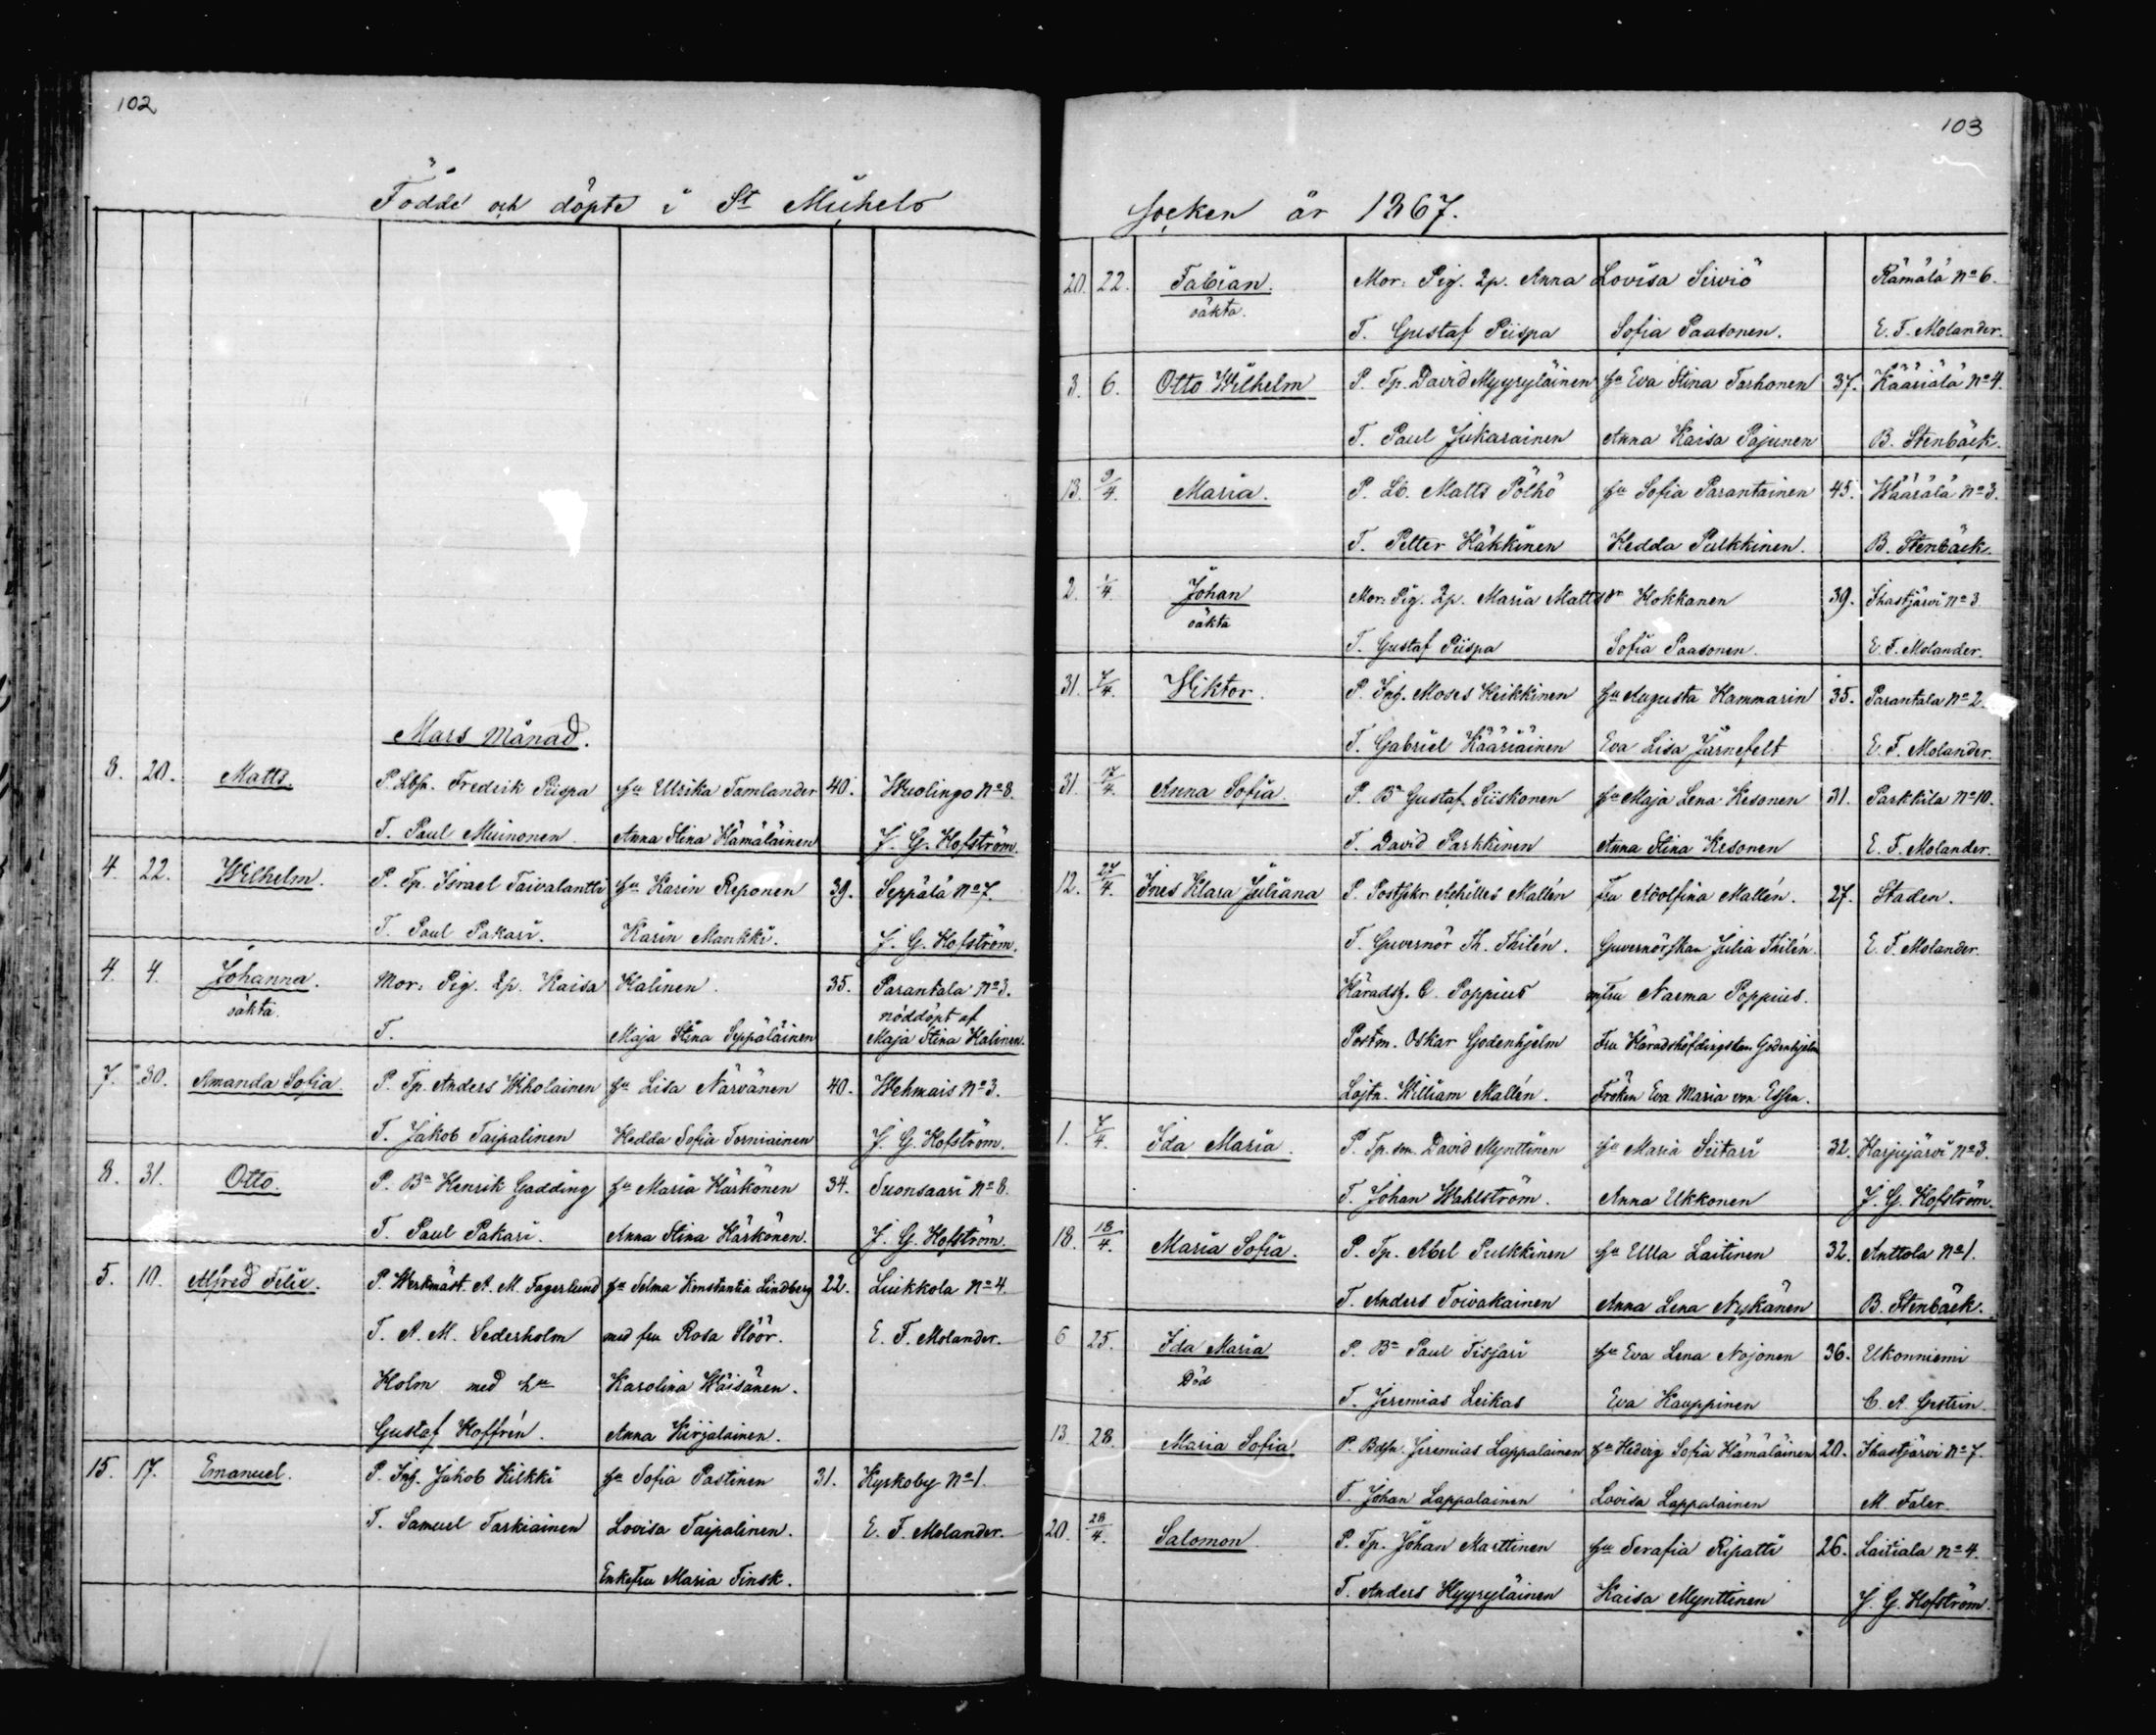 102
Födde och döpte i St Michels
Mars Månad.
8. 20. Matts. P. Lbfr. Fredrik Piispa hu Ulrika Tamlander 40. Wuolingo No 8.
T. Paul Muinonen. Anna Stina Hämäläinen J. G. Hofström.
4. 22. Wilhelm. P. Tp. Israel Taivalantti hu Karin Reponen 39. Seppälä No 7.
T. Paul Pakari. Karin Mankki. J. G. Hofström.
4. 4. Johanna. Mor: Pig. Lp. Kaisa Halinen. 35. Parantala No 3.
oäkta. nöddöpt af
T. Maja Stina Seppäläinen Maja Stina Halinen.
7. 30. Amanda Sofia. P. Tp. Anders Wiholainen hu Lisa Närvänen 40. Wehmais No 3.
T. Jakob Taipalinen Hedda Sofia Torniainen J. G. Hofström.
8. 31. Otto. P. Bn Henrik Gadding hu Maria Härkönen 34. Suonsaari No 8.
T. Paul Pakari. Anna Stina Härkönen. J. G. Hofström.
5. 10. Alfred Felix. P. Werkmäst. A. M. Fagerlund hu Selma Konstantia Lindberg 22. Liukkola No 4.
T. A. M. Sederholm med fru Rosa Stöör. E. F. Molander.
Holm med hu Karolina Wäisänen.
Gustaf Hoffrén. Anna Kirjalainen.
15. 17. Emanuel. P. Inh. Jakob Kilkki hu Sofia Pastinen 31. Kyrkoby No 1.
T. Samuel Tarkiainen Lovisa Taipalinen. E. F. Molander.
Enkefru Maria Finsk.
103
Socken år 1867.
20. 22. Fabian. Mor: Pig. Lp. Anna Lovisa Sirviö Rämälä No 6.
oäkta.
T. Gustaf Piispa Sofia Paasonen. E. F. Molander.
3. 6. Otto Wilhelm P. Tp. David Myyryläinen hu Eva Stina Tarhonen 37. Kääriälä No 4.
T. Paul Jukarainen Anna Kaisa Pajunen B. Stenbäck.
13. 9/4. Maria. P. Lb. Matts Pölhö hu Sofia Parantainen 45. Wäärälä No 3.
T. Petter Häkkinen Hedda Pulkkinen. B. Stenbäck.
2. 1/4 Johan Mor: Pig. Lp. Maria Mattsdr Hokkanen 39. Ihastjärvi No 3
oäkta
T. Gustaf Piispa Sofia Paasonen. E. F. Molander.
31. 7/4. Wiktor. P. Inh. Moses Heikkinen hu Augusta Hammarin 35. Parantala No 2.
T. Gabriel Kääriäinen Eva Lisa Järnefelt E. F. Molander.
31. 17/4. Anna Sofia. P. Bn Gustaf Siiskonen hu Maja Lena Kesonen 31. Parkkila No 10.
T. David Parkkinen Anna Stina Kesonen E. F. Molander.
12. 27/4. Ines Klara Juliana P. Postsekr. Achilles Mallén Fru Adolfina Mallén. 27. Staden.
T. Guvernör Th. Thilén. Guvernörskan Julia Thilén. E. F. Molander.
Häradsh. C. Poppius m. fru Narma Poppius.
Postm. Oskar Godenhjelm Fru Häradshöfdingskan Godenhjelm
Löjtn. William Mallén. Fröken Eva Maria von Essen.
1. 7/4. Ida Maria. P. Tp. sm. David Mynttinen hu Maria Siitari 32. Harjujärvi No 3.
T. Johan Wahlström. Anna Ukkonen J. G. Hofström.
18. 18/4. Maria Sofia. P. Tp. Abel Pulkkinen hu Ulla Laitinen 32. Anttola No 1.
T. Anders Toivakainen Anna Lena Nykänen B. Stenbäck.
6 25. Ida Maria P. Bn Paul Tissari hu Eva Lena Nojonen 36. Ukonniemi
Död
T. Jeremias Leikas Eva Kauppinen C. A. Gestrin.
13 28. Maria Sofia P. Bdsn. Jeremias Lappalainen hu Hedvig Sofia Hämäläinen 20. Ihastjärvi No 7.
T. Johan Lappalainen Lovisa Lappalainen M. Faler.
20. 28/4. Salomon. P. Tp. Johan Marttinen hu Serafia Ripatti 26. Laitiala No 4.
T. Anders Hyyryläinen Kaisa Mynttinen J. G. Hofström.